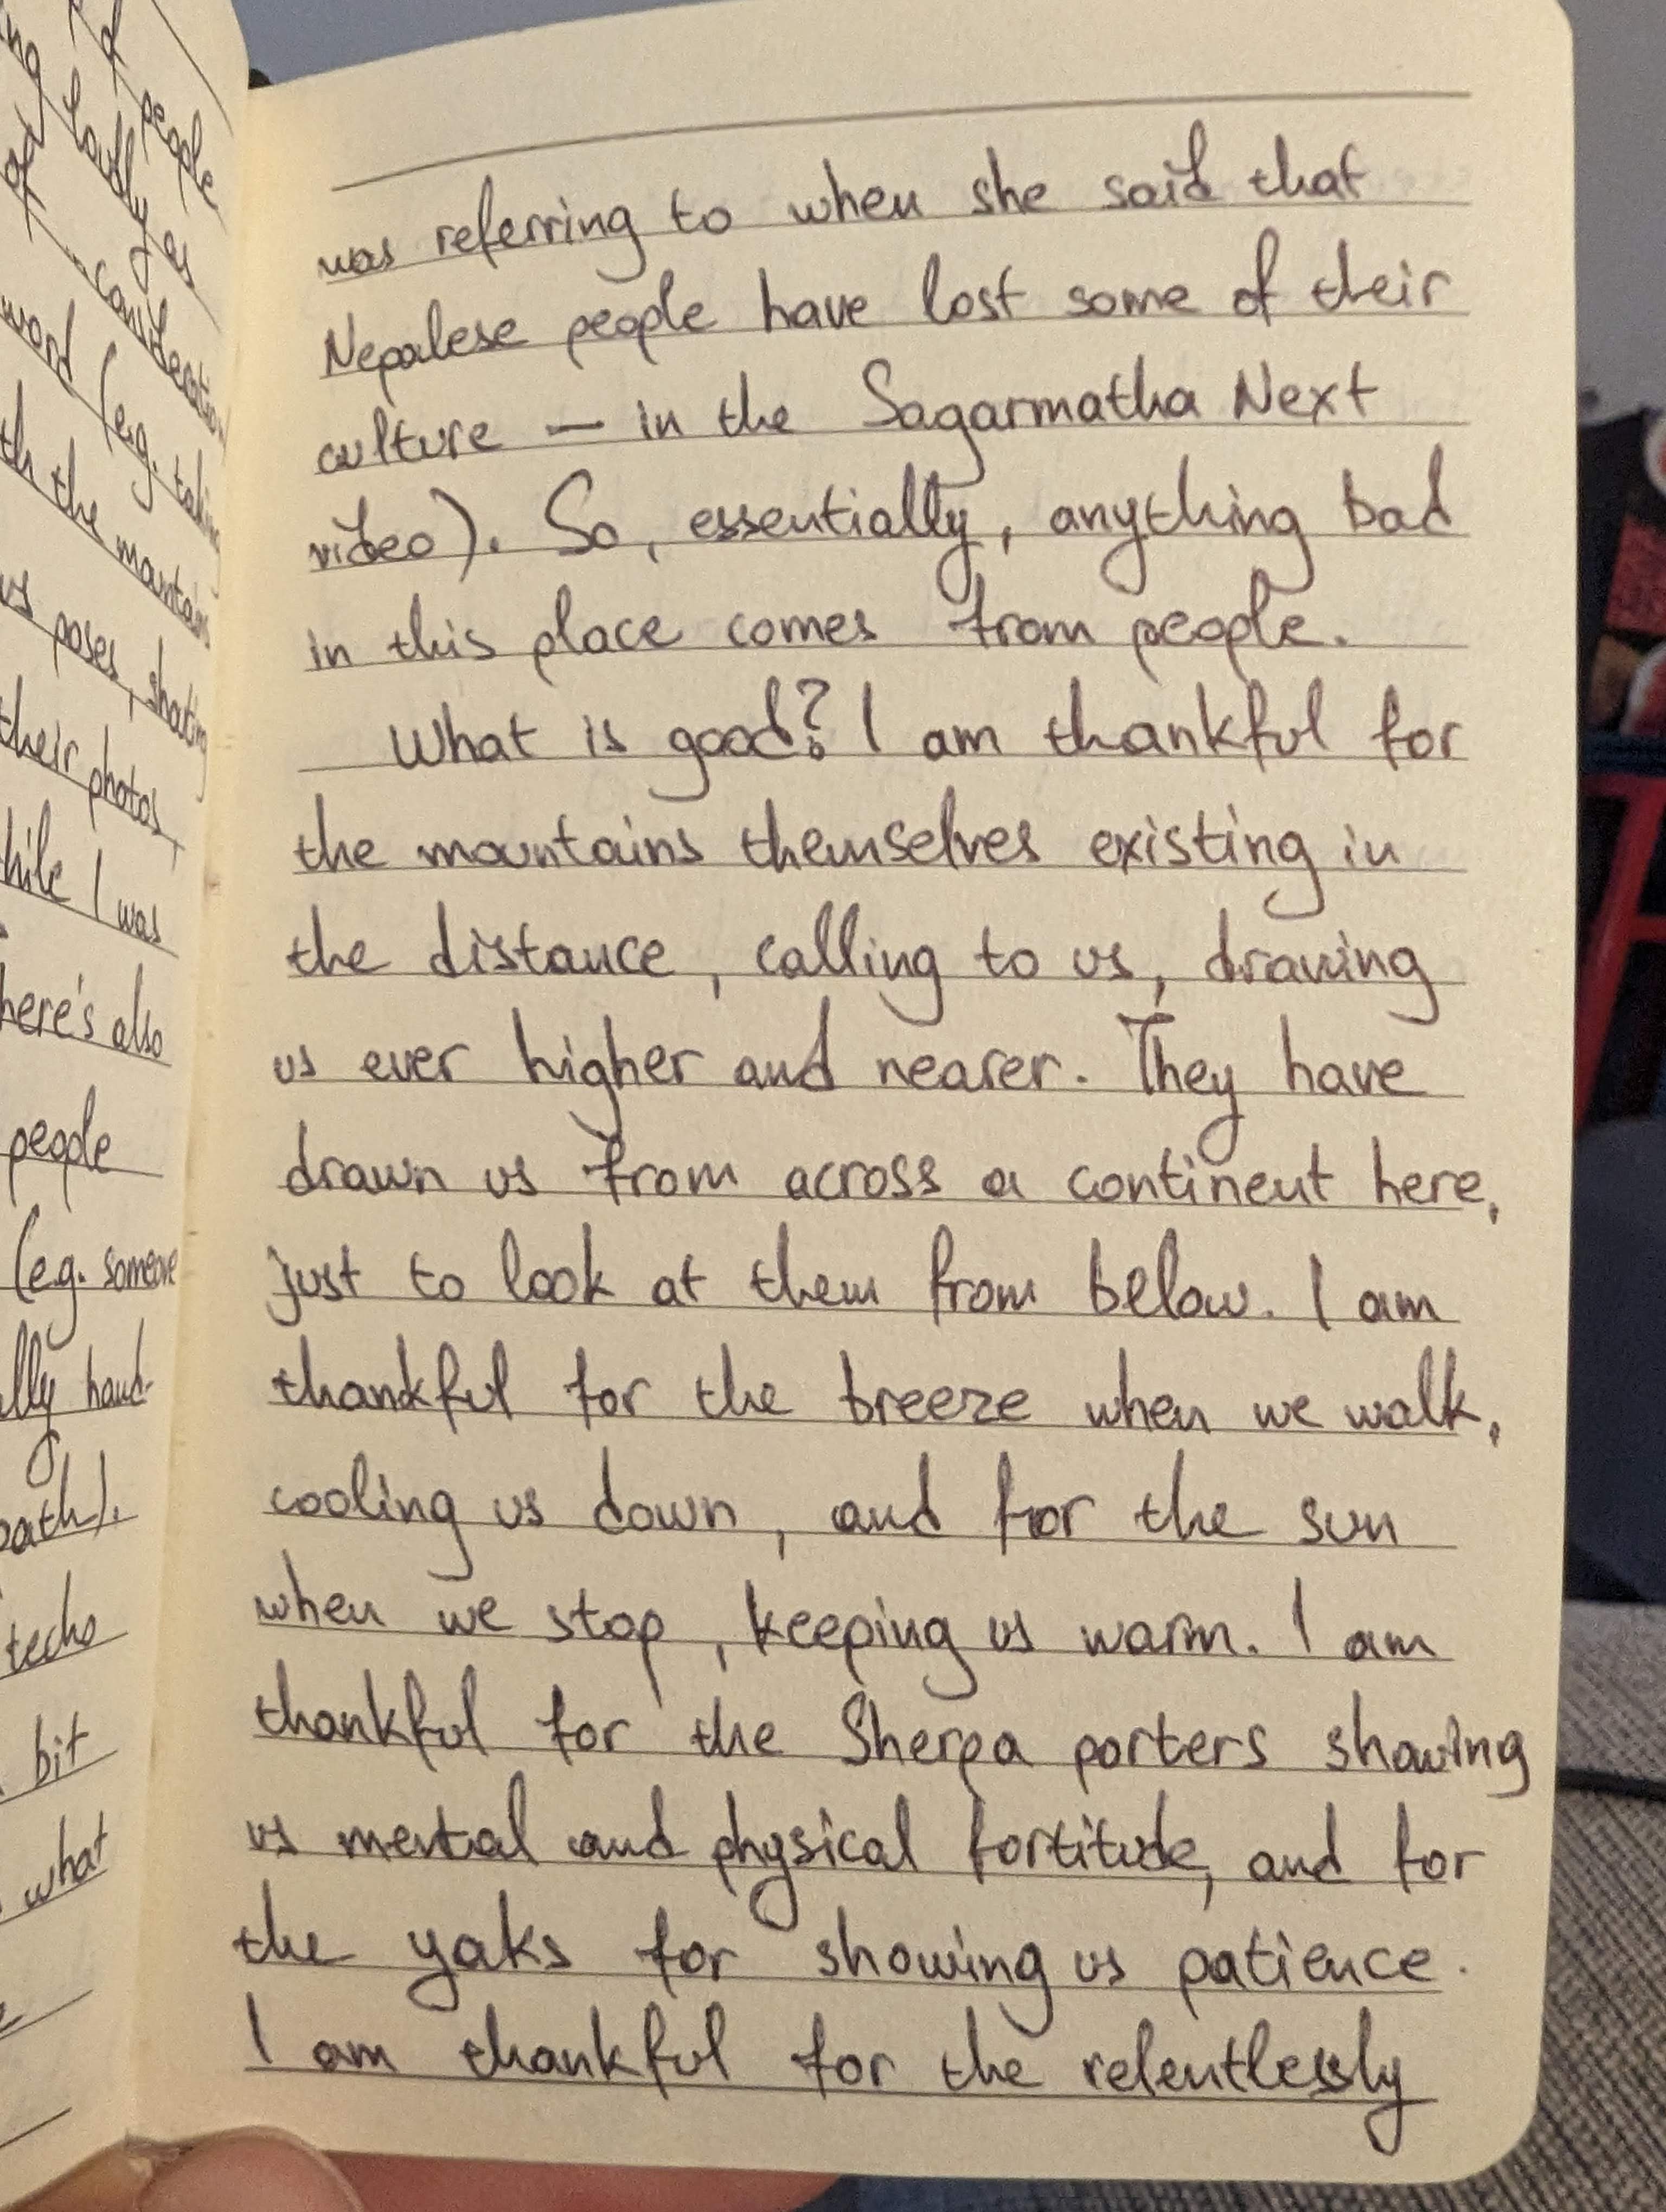 of people
loudly as
of
word (e.g. taking
th the mountains
us poses,
their photos,
hile I was
here's also
people
(e.g. someone
lly hand-
path).
techo
bit
what
was referring to when she said that
Nepalese people have lost some of their
culture — in the Sagarmatha Next
video). So, essentially, anything bad
in this place comes from people.
What is good? I am thankful for
the mountains themselves existing in
the distance, calling to us, drawing
us ever higher and nearer. They have
drawn us from across a continent here,
just to look at them from below. I am
thankful for the breeze when we walk,
cooling us down, and for the sun
when we stop, keeping us warm. I am
thankful for the Sherpa porters showing
us mental and physical fortitude, and for
the yaks for showing us patience.
I am thankful for the relentlessly